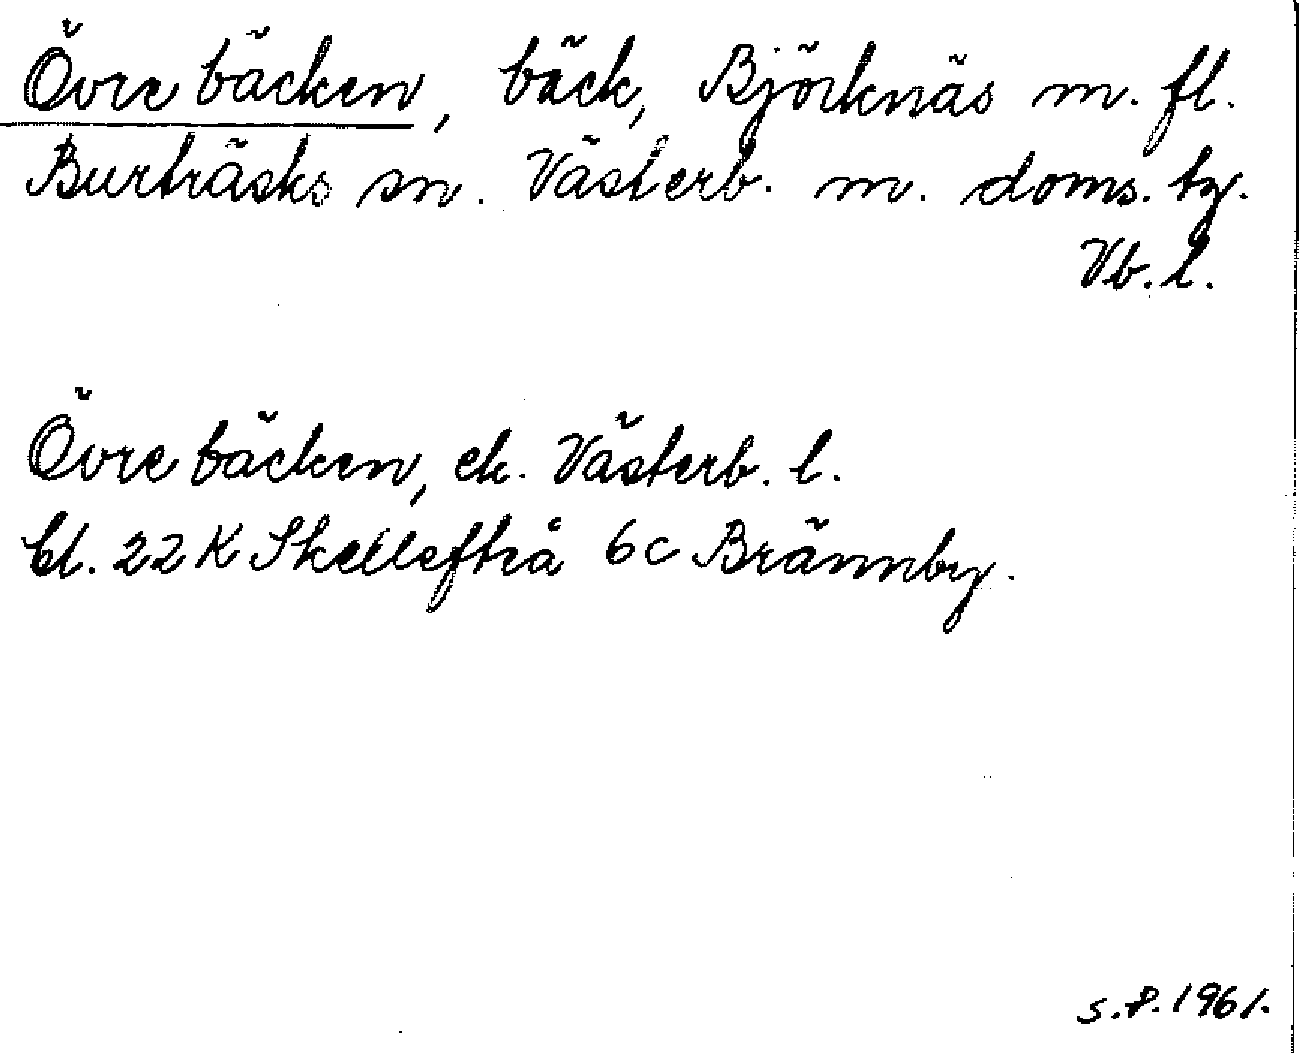 Övre bäcken, bäck, Björknäs m. fl.
Burträsks sn. Västerb. m. doms. by.
Vb. l.
Övre bäcken, ek. Västerb. l.
bl. 22 K Skellefteå 6c Brännby.
S.P. 1961.